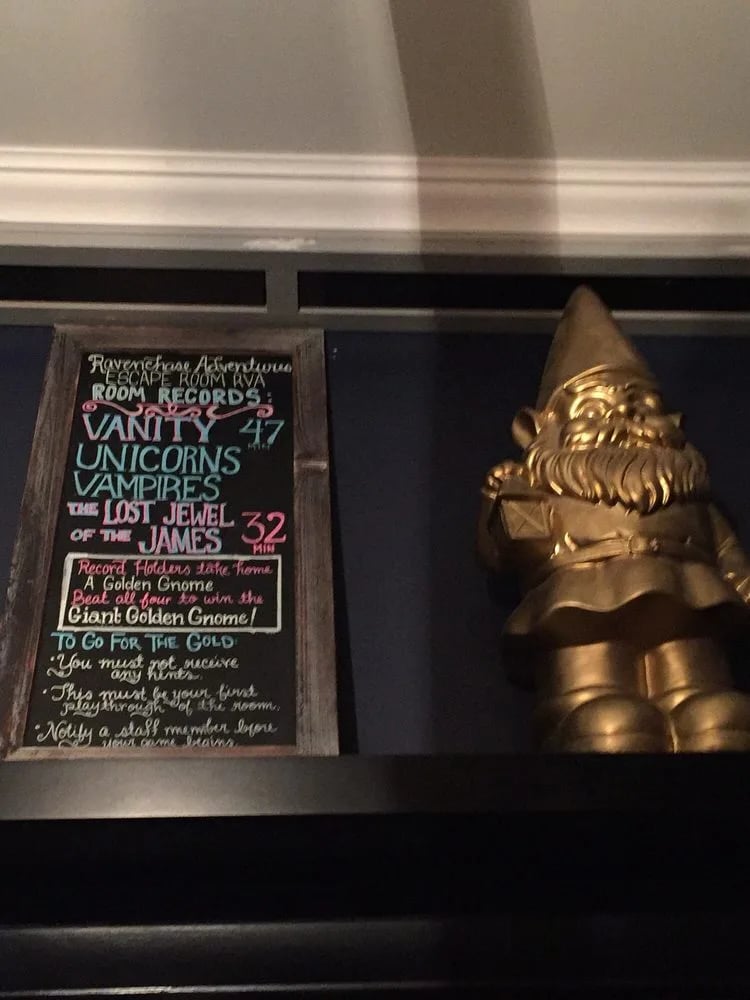 Ravenchase Adventures
ESCAPE ROOM RVA
ROOM RECORDS:
VANITY 47 MIN
UNICORNS
VAMPIRES
THE LOST JEWEL
OF THE JAMES 32 MIN
Record Holders take home
A Golden Gnome
Beat all four to win the
Giant Golden Gnome!
TO GO FOR THE GOLD:
• You must not receive
any hints.
• This must be your first
playthrough of the room.
• Notify a staff member before
your game begins.